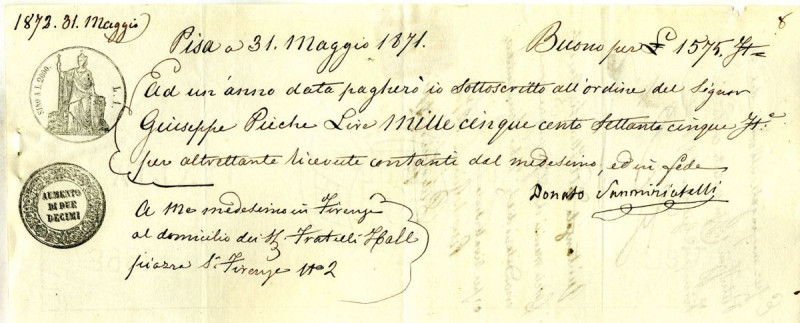 1872. 31. Maggio
8
Pisa a 31. Maggio 1871. Buono per £ 1575. It=
SINO A L. 2000. L. 1.
Ad un'anno data pagherò io sottoscritto all'ordine del Signor
Giuseppe Pieche Lire Mille cinque cento settanta cinque It.e
per altrettante ricevute contanti dal medesimo, ed in fede
Donato Sanminiatelli
AUMENTO
DI DUE
DECIMI
A Me medesimo in Firenze
al domicilio dei SS. Fratelli Hall
piazza S. Firenze No 2